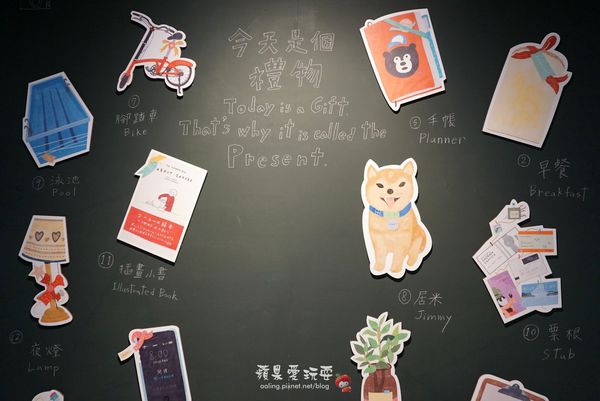 今天是個
禮物
Today is a Gift.
That's why it is called the
Present.
⑦
腳踏車
Bike
⑤ 手帳
Planner
② 早餐
Breakfast
⑨ 泳池
Pool
ABOUT COFFEE
⑪ 插畫小書
Illustrated Book
⑧ 居米
Jimmy
⑩ 票根
Stub
⑫ 夜燈
Lamp
8:00
蘋果愛玩耍
aaling.pixnet.net/blog